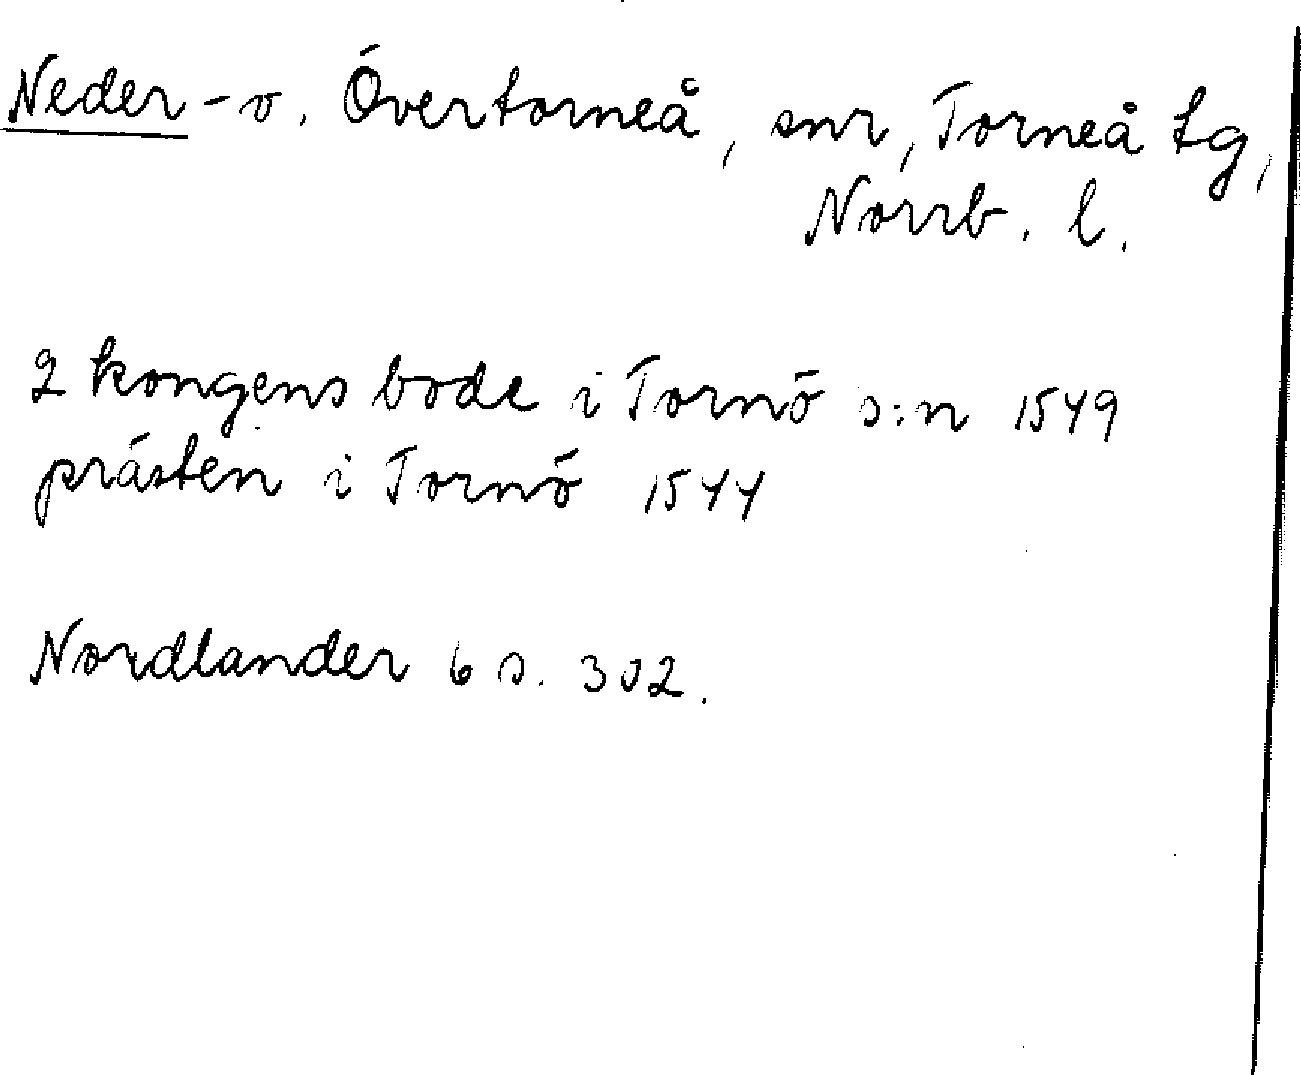 Neder- o. Övertorneå, snr, Torneå tg,
Norrb. l.
2 kongens bode i Tornö s:n 1549
prästen i Tornö 1544
Nordlander 6 s. 302.